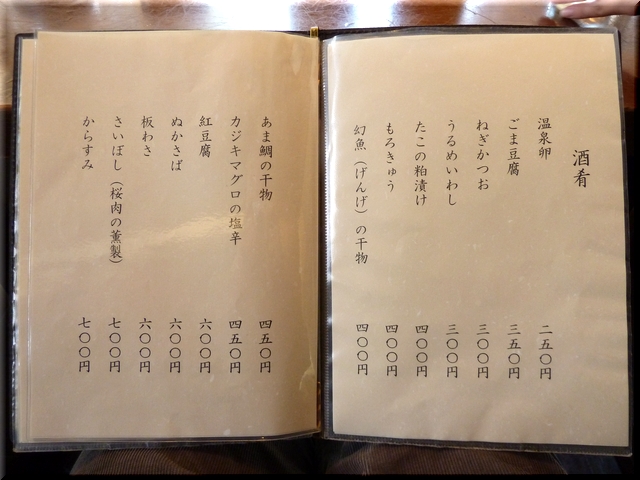 酒肴
温泉卵 二五〇円
ごま豆腐 三五〇円
ねぎかつお 三〇〇円
うるめいわし 三〇〇円
たこの粕漬け 四〇〇円
もろきゅう 四〇〇円
幻魚(げんげ)の干物 四〇〇円
あま鯛の干物 四五〇円
カジキマグロの塩辛 四五〇円
紅豆腐 六〇〇円
ぬかさば 六〇〇円
板わさ 六〇〇円
さいぼし(桜肉の薫製) 七〇〇円
からすみ 七〇〇円